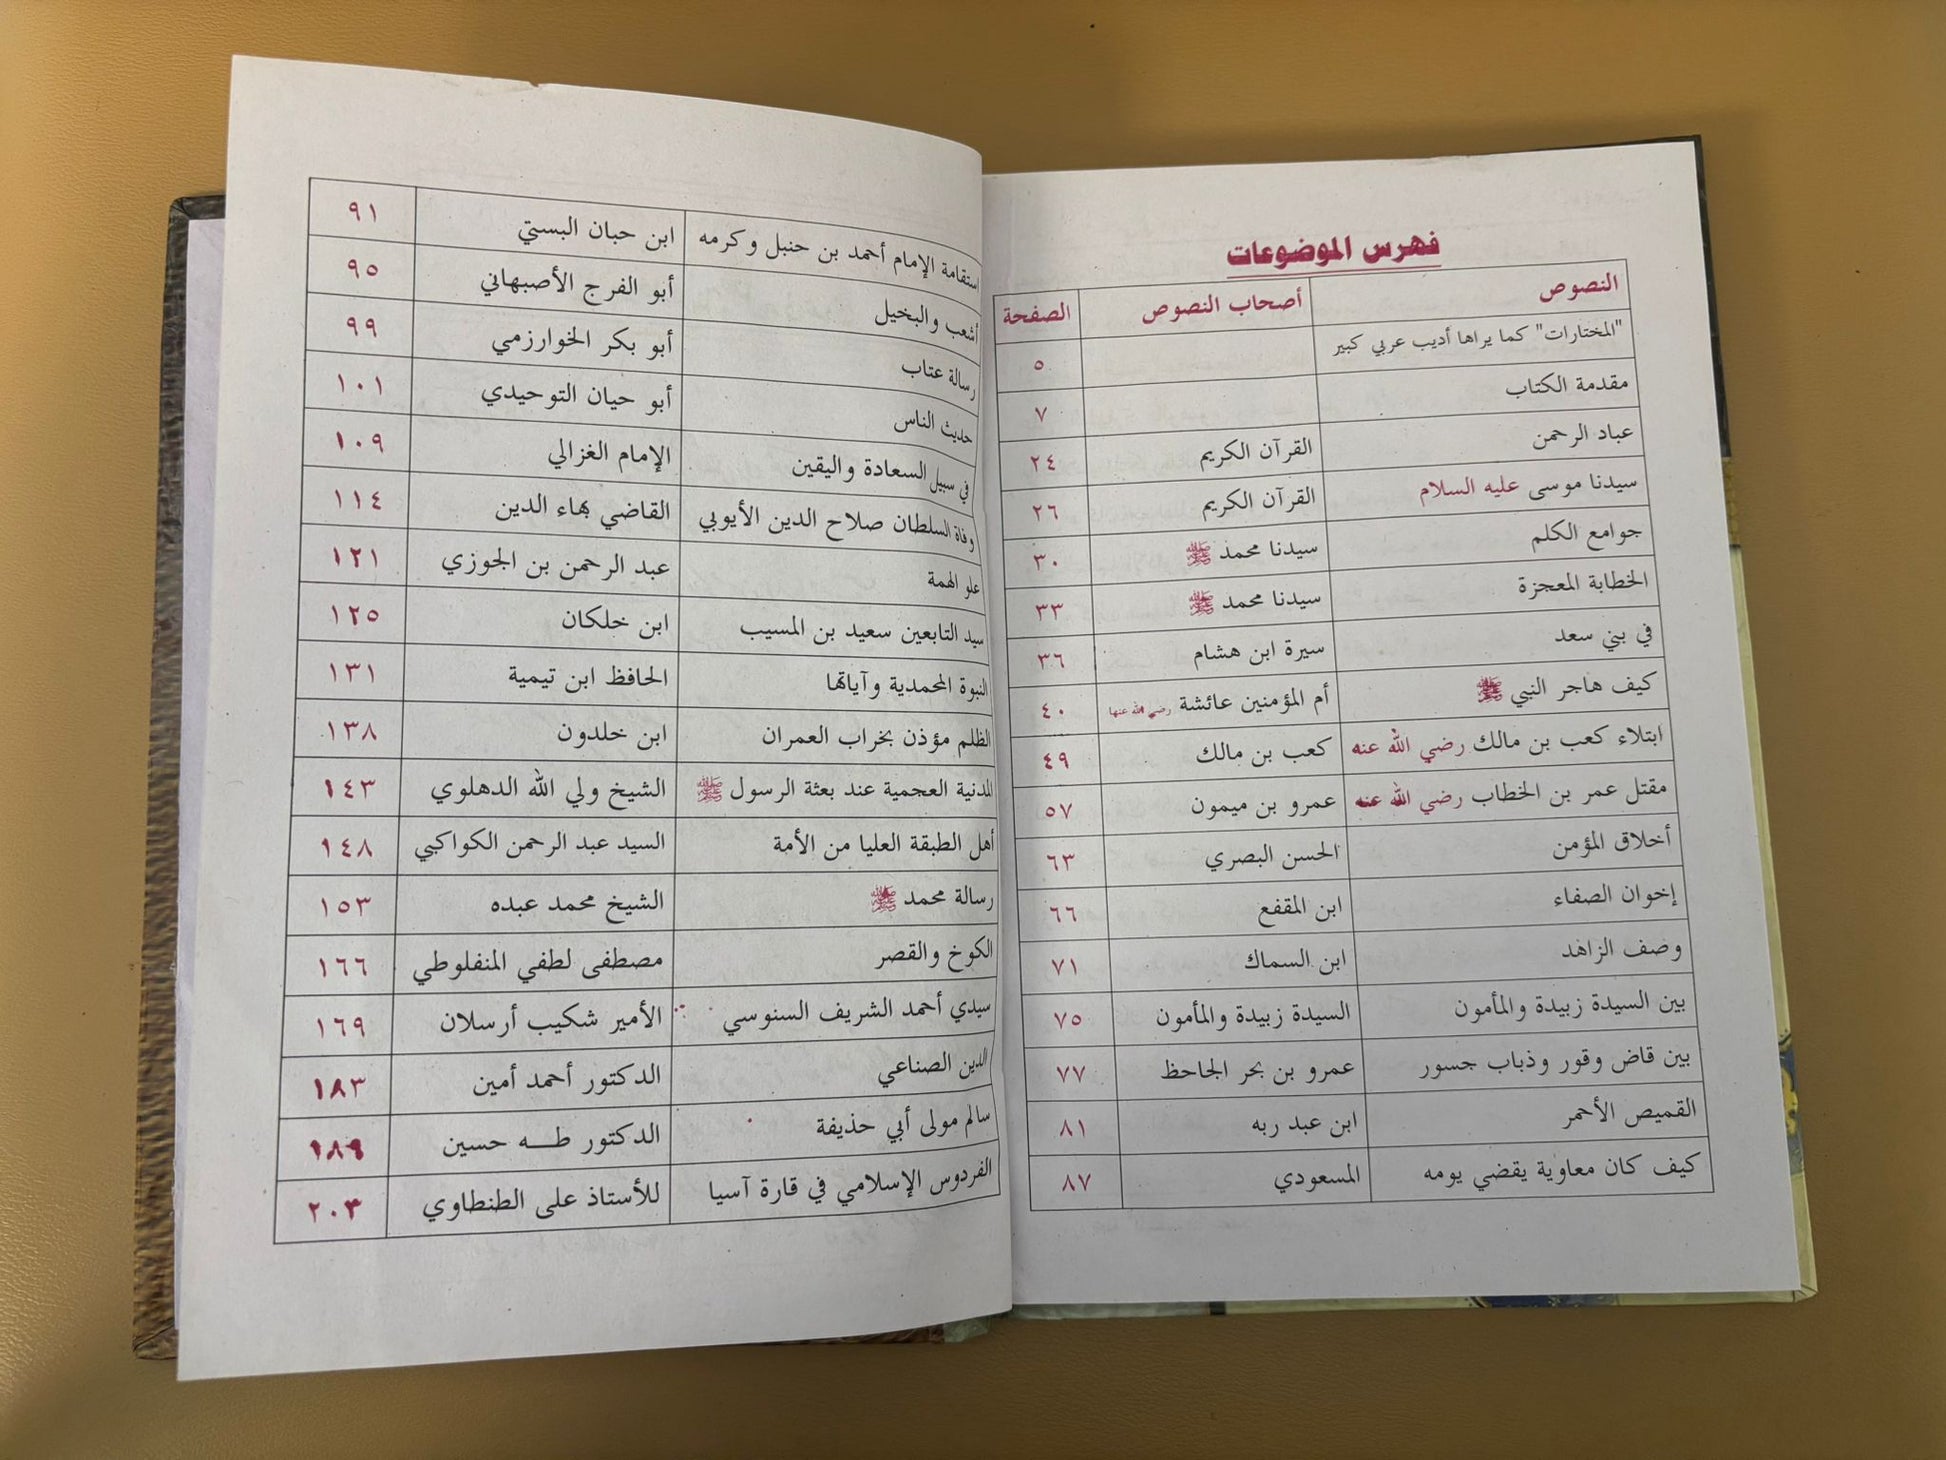 فهرس الموضوعات
النصوص أصحاب النصوص الصفحة
"المختارات" كما يراها أديب عربي كبير ٥
مقدمة الكتاب ٧
عباد الرحمن القرآن الكريم ٢٤
سيدنا موسى عليه السلام القرآن الكريم ٢٦
جوامع الكلم سيدنا محمد ﷺ ٣٠
الخطابة المعجزة سيدنا محمد ﷺ ٣٣
في بني سعد سيرة ابن هشام ٣٦
كيف هاجر النبي ﷺ أم المؤمنين عائشة رضي الله عنها ٤٠
ابتلاء كعب بن مالك رضي الله عنه كعب بن مالك ٤٩
مقتل عمر بن الخطاب رضي الله عنه عمرو بن ميمون ٥٧
أخلاق المؤمن الحسن البصري ٦٣
إخوان الصفاء ابن المقفع ٦٦
وصف الزاهد ابن السماك ٧١
بين السيدة زبيدة والمأمون السيدة زبيدة والمأمون ٧٥
بين قاض وقور وذباب جسور عمرو بن بحر الجاحظ ٧٧
القميص الأحمر ابن عبد ربه ٨١
كيف كان معاوية يقضي يومه المسعودي ٨٧
استقامة الإمام أحمد بن حنبل وكرمه ابن حبان البستي ٩١
أشعب والبخيل أبو الفرج الأصبهاني ٩٥
رسالة عتاب أبو بكر الخوارزمي ٩٩
حديث الناس أبو حيان التوحيدي ١٠١
في سبيل السعادة واليقين الإمام الغزالي ١٠٩
وفاة السلطان صلاح الدين الأيوبي القاضي بهاء الدين ١١٤
علو الهمة عبد الرحمن بن الجوزي ١٢١
سيد التابعين سعيد بن المسيب ابن خلكان ١٢٥
النبوة المحمدية وآياتها الحافظ ابن تيمية ١٣١
الظلم مؤذن بخراب العمران ابن خلدون ١٣٨
المدنية العجمية عند بعثة الرسول ﷺ الشيخ ولي الله الدهلوي ١٤٣
أهل الطبقة العليا من الأمة السيد عبد الرحمن الكواكبي ١٤٨
رسالة محمد ﷺ الشيخ محمد عبده ١٥٣
الكوخ والقصر مصطفى لطفي المنفلوطي ١٦٦
سيدي أحمد الشريف السنوسي الأمير شكيب أرسلان ١٦٩
الدين الصناعي الدكتور أحمد أمين ١٨٣
سالم مولى أبي حذيفة الدكتور طـــه حسين ١٨٩
الفردوس الإسلامي في قارة آسيا للأستاذ على الطنطاوي ٢٠٣